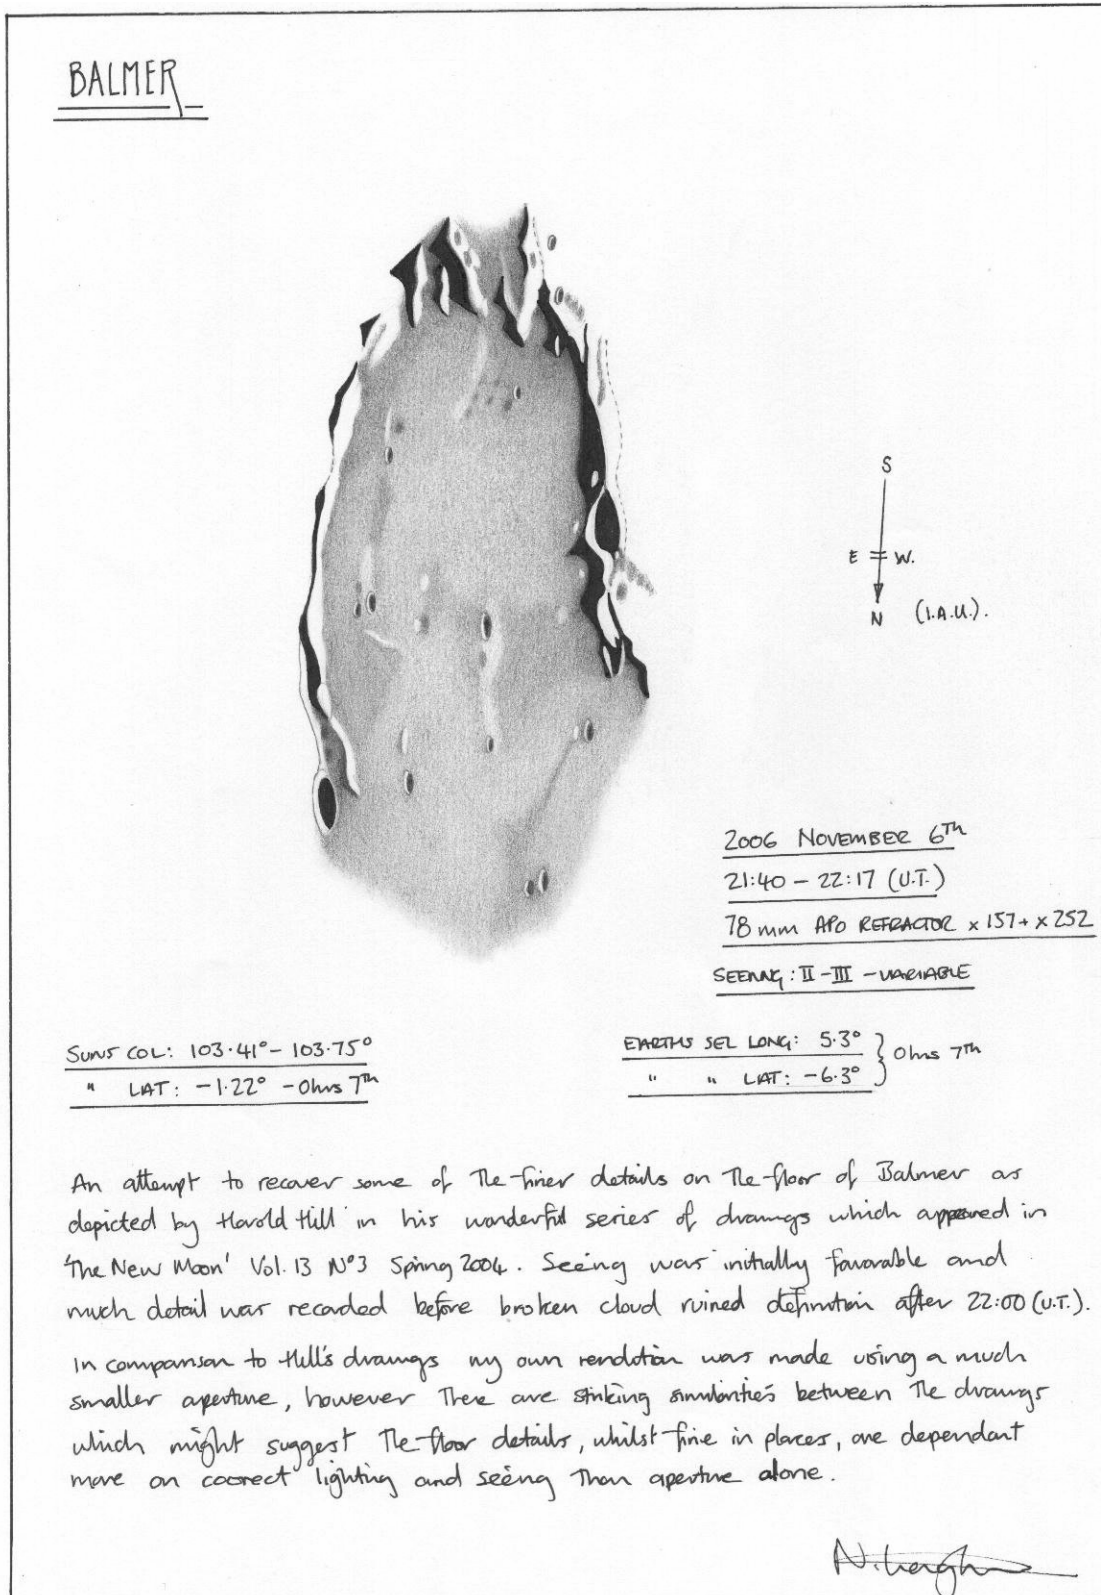 BALMER
S
E W.
N (I.A.U.).
2006 NOVEMBER 6Th
21:40 – 22:17 (U.T.)
78 mm APO REFRACTOR x 157 + x 252
SEEING: II – III – VARIABLE
SUNS COL: 103.41° – 103.75°
" LAT: –1.22° – 0hrs 7th
EARTHS SEL LONG: 5.3°
" " LAT: –6.3° } 0hrs 7th
An attempt to recover some of the finer details on the floor of Balmer as
depicted by Harold Hill in his wonderful series of drawings which appeared in
'The New Moon' Vol. 13 Nº3 Spring 2004. Seeing was initially favorable and
much detail was recorded before broken cloud ruined definition after 22:00 (U.T.).
In comparison to Hill's drawings my own rendition was made using a much
smaller aperture, however there are striking similarities between the drawings
which might suggest the floor details, whilst fine in places, are dependant
more on coorect lighting and seeing than aperture alone.